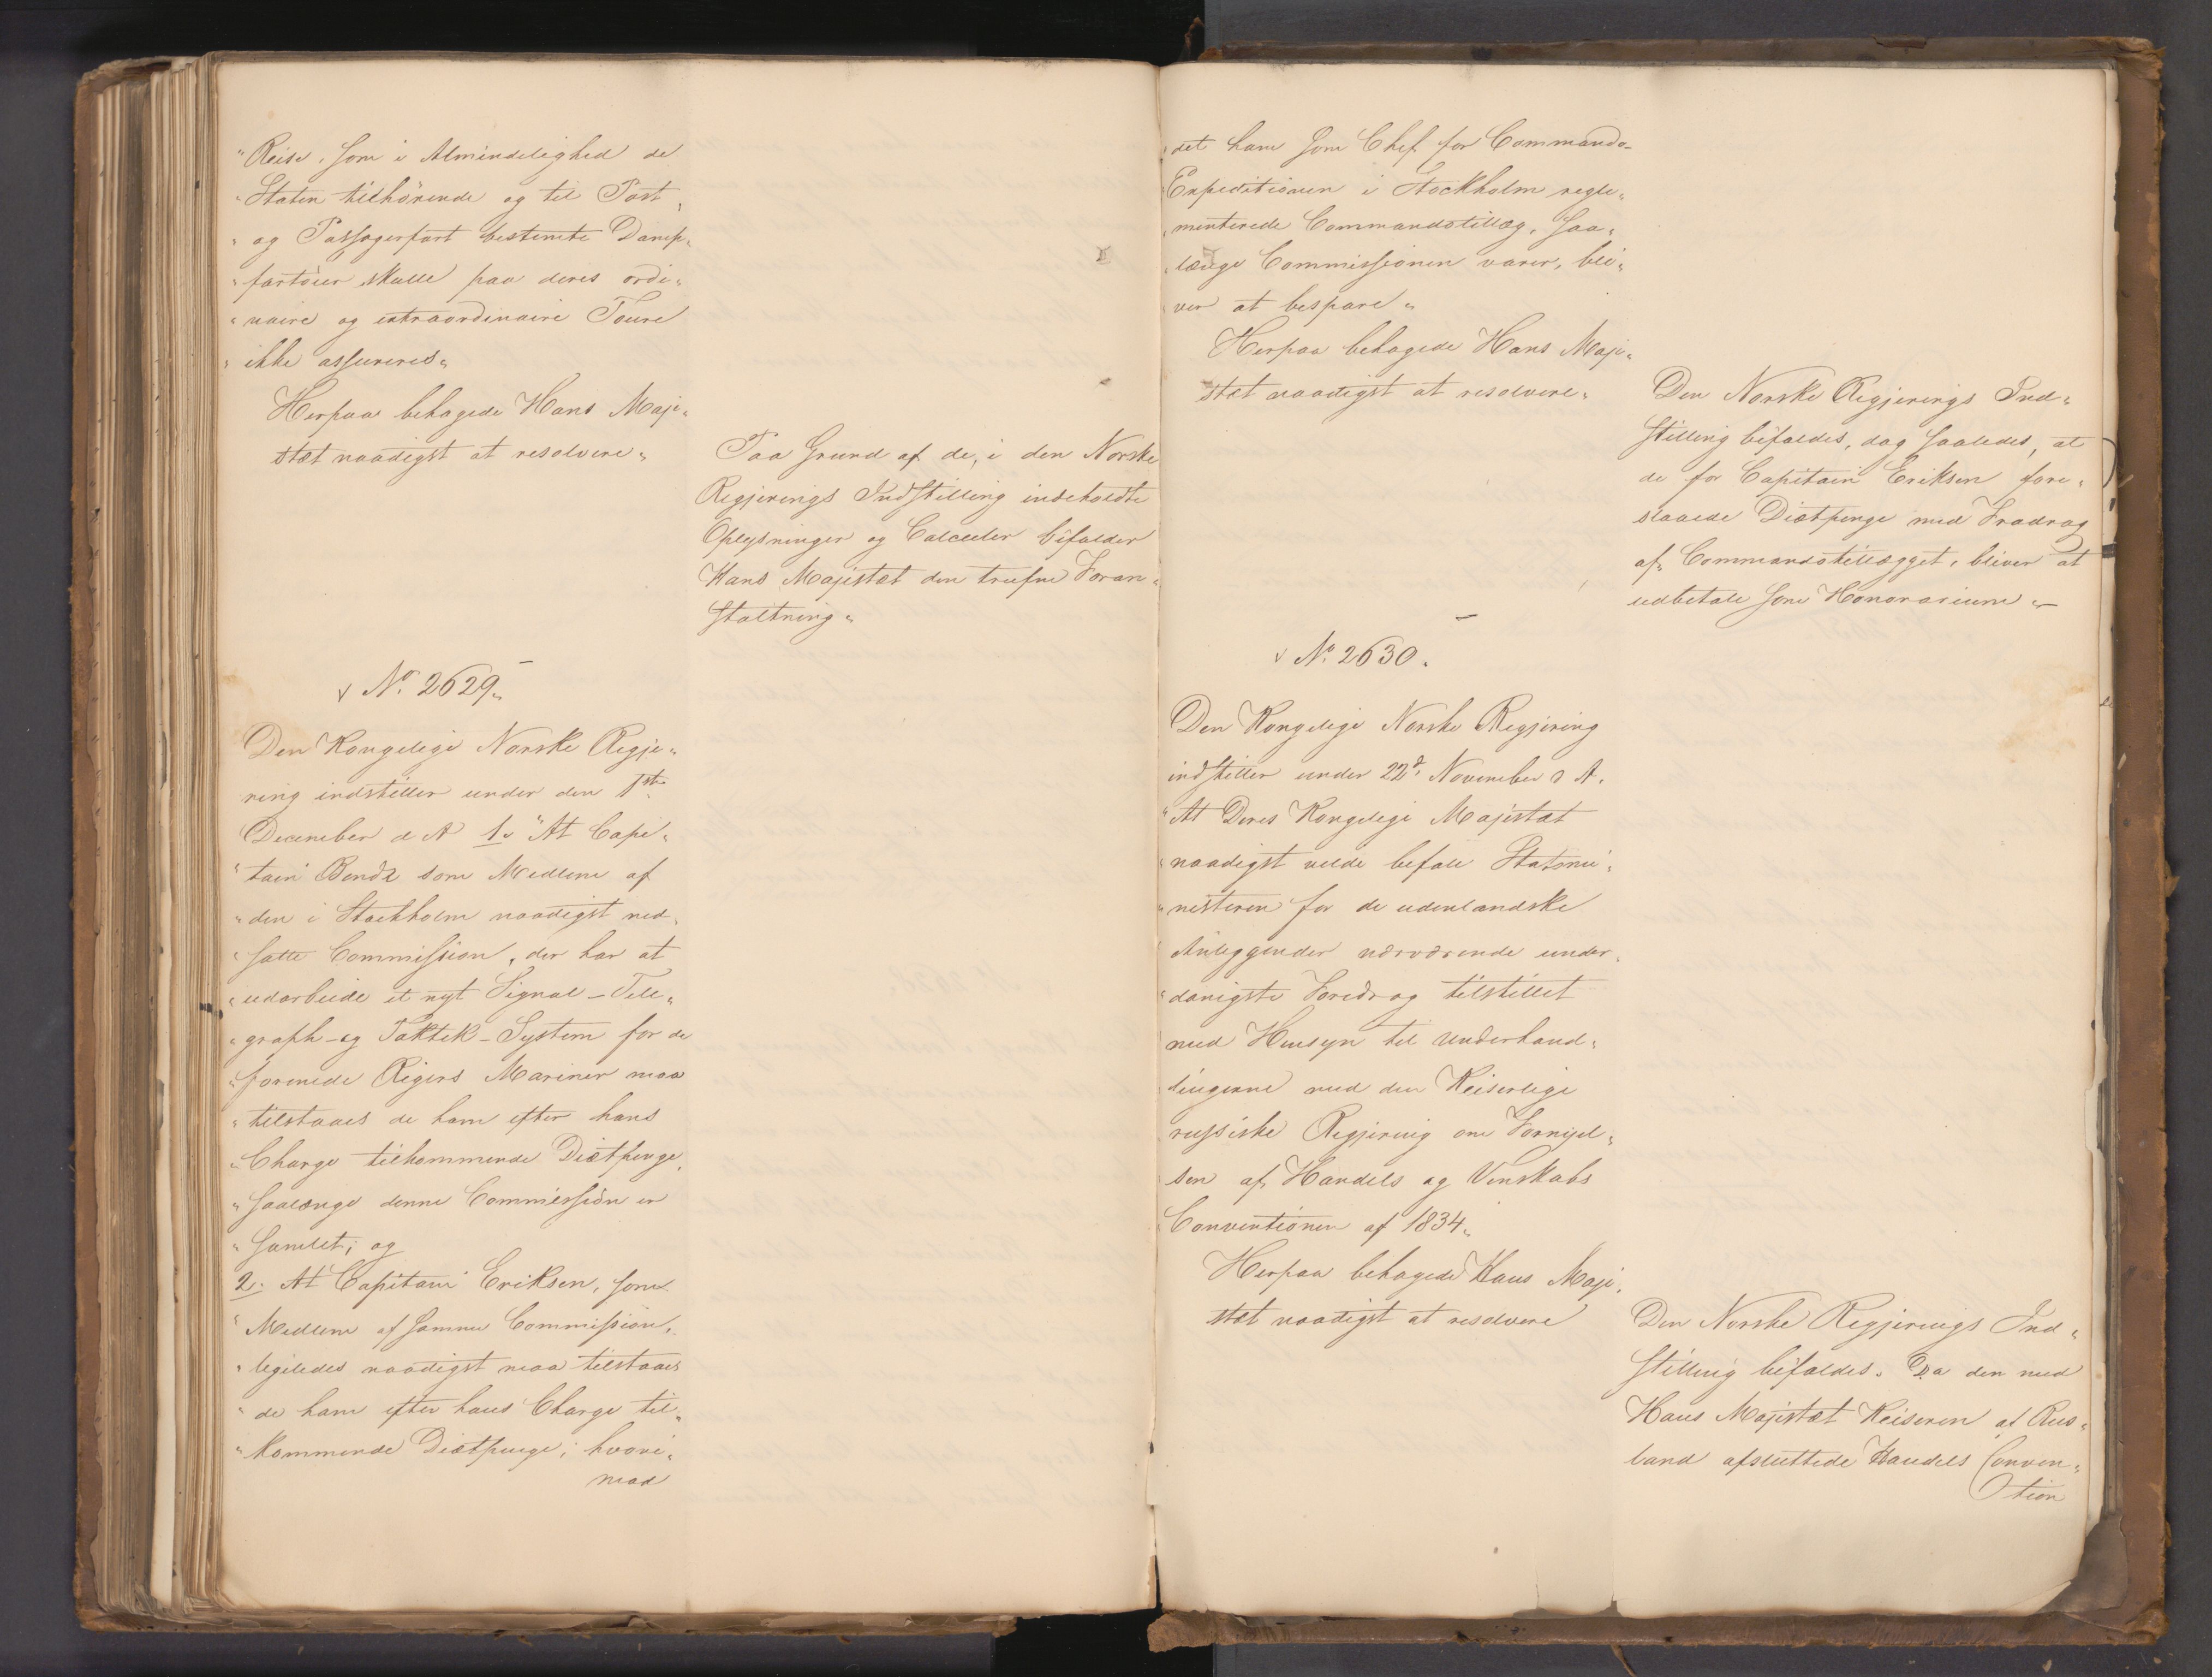 "Reise, som i Almindelighed de
"Staten tilhörende og til Post-
"og Passagerfart bestemte Damp-
"fartöier skulle paa deres ordi-
"naire og extraordinaire Toure
"ikke assureres"
Herpaa behagede Hans Maje-
stæt naadigst at resolvere"
Paa Grund af de, i den Norske
Regjerings Indstilling indeholdte
Oplysninger og Calculer bifalder
Hans Majestæt den trufne Foran-
staltning"
No. 2629"
Den Kongelige Norske Regje-
ring indstiller under den 1ste
December d A 1. "At Capi-
"tain Bendz som Medlem af
"den i Stockholm naadigst ned-
"satte Commission, der har at
"udarbeide et nyt Signal-Tele-
"graph-og Taktik-System for de
"forenede Rigers Mariner maa
"tilstaaes de ham efter hans
"Charge tilkommende Diætpenge,
"saalænge denne Commission er
"samlet; og
2. At Capitain Eriksen, som
"Medlem af samme Commission,
"ligeledes naadigst maa tilstaaes
"de ham efter hans Charge til-
"kommende Diætpenge; hvori-
mod
"det ham som Chef for Commando-
"Expeditionen i Stockholm regle-
"menterede Commandotillæg, saa-
"længe Commissionen varer, bli-
"ver at bespare"
Herpaa behagede Hans Maje-
stæt naadigst at resolvere"
Den Norske Regjerings Ind-
stilling bifaldes, dog saaledes, at
de for Capitain Eriksen fore-
slaaede Diætpenge med Fradrag
af Commandotillægget, bliver at
udbetale som Honorarium"
No. 2630.
Den Kongelige Norske Regjering
indstiller under 22d. November d A.
"At Deres Kongelige Majestæt
"naadigst vilde befale Statsmi-
"nisteren for de udenlandske
"Anliggender nærværende under-
"danigste Foredrag tilstillet
"med Hensyn til Underhand-
"lingerne med den Keiserlige
"russiske Regjering om Fornyel-
"sen af Handels og Venskabs
"Conventionen af 1834"
Herpaa behagede Hans Maje-
stæt naadigst at resolvere
Den Norske Regjerings Ind-
stilling bifaldes. Da den med
Hans Majestæt Keiseren af Rus-
land afsluttede Handels Conven-
tion